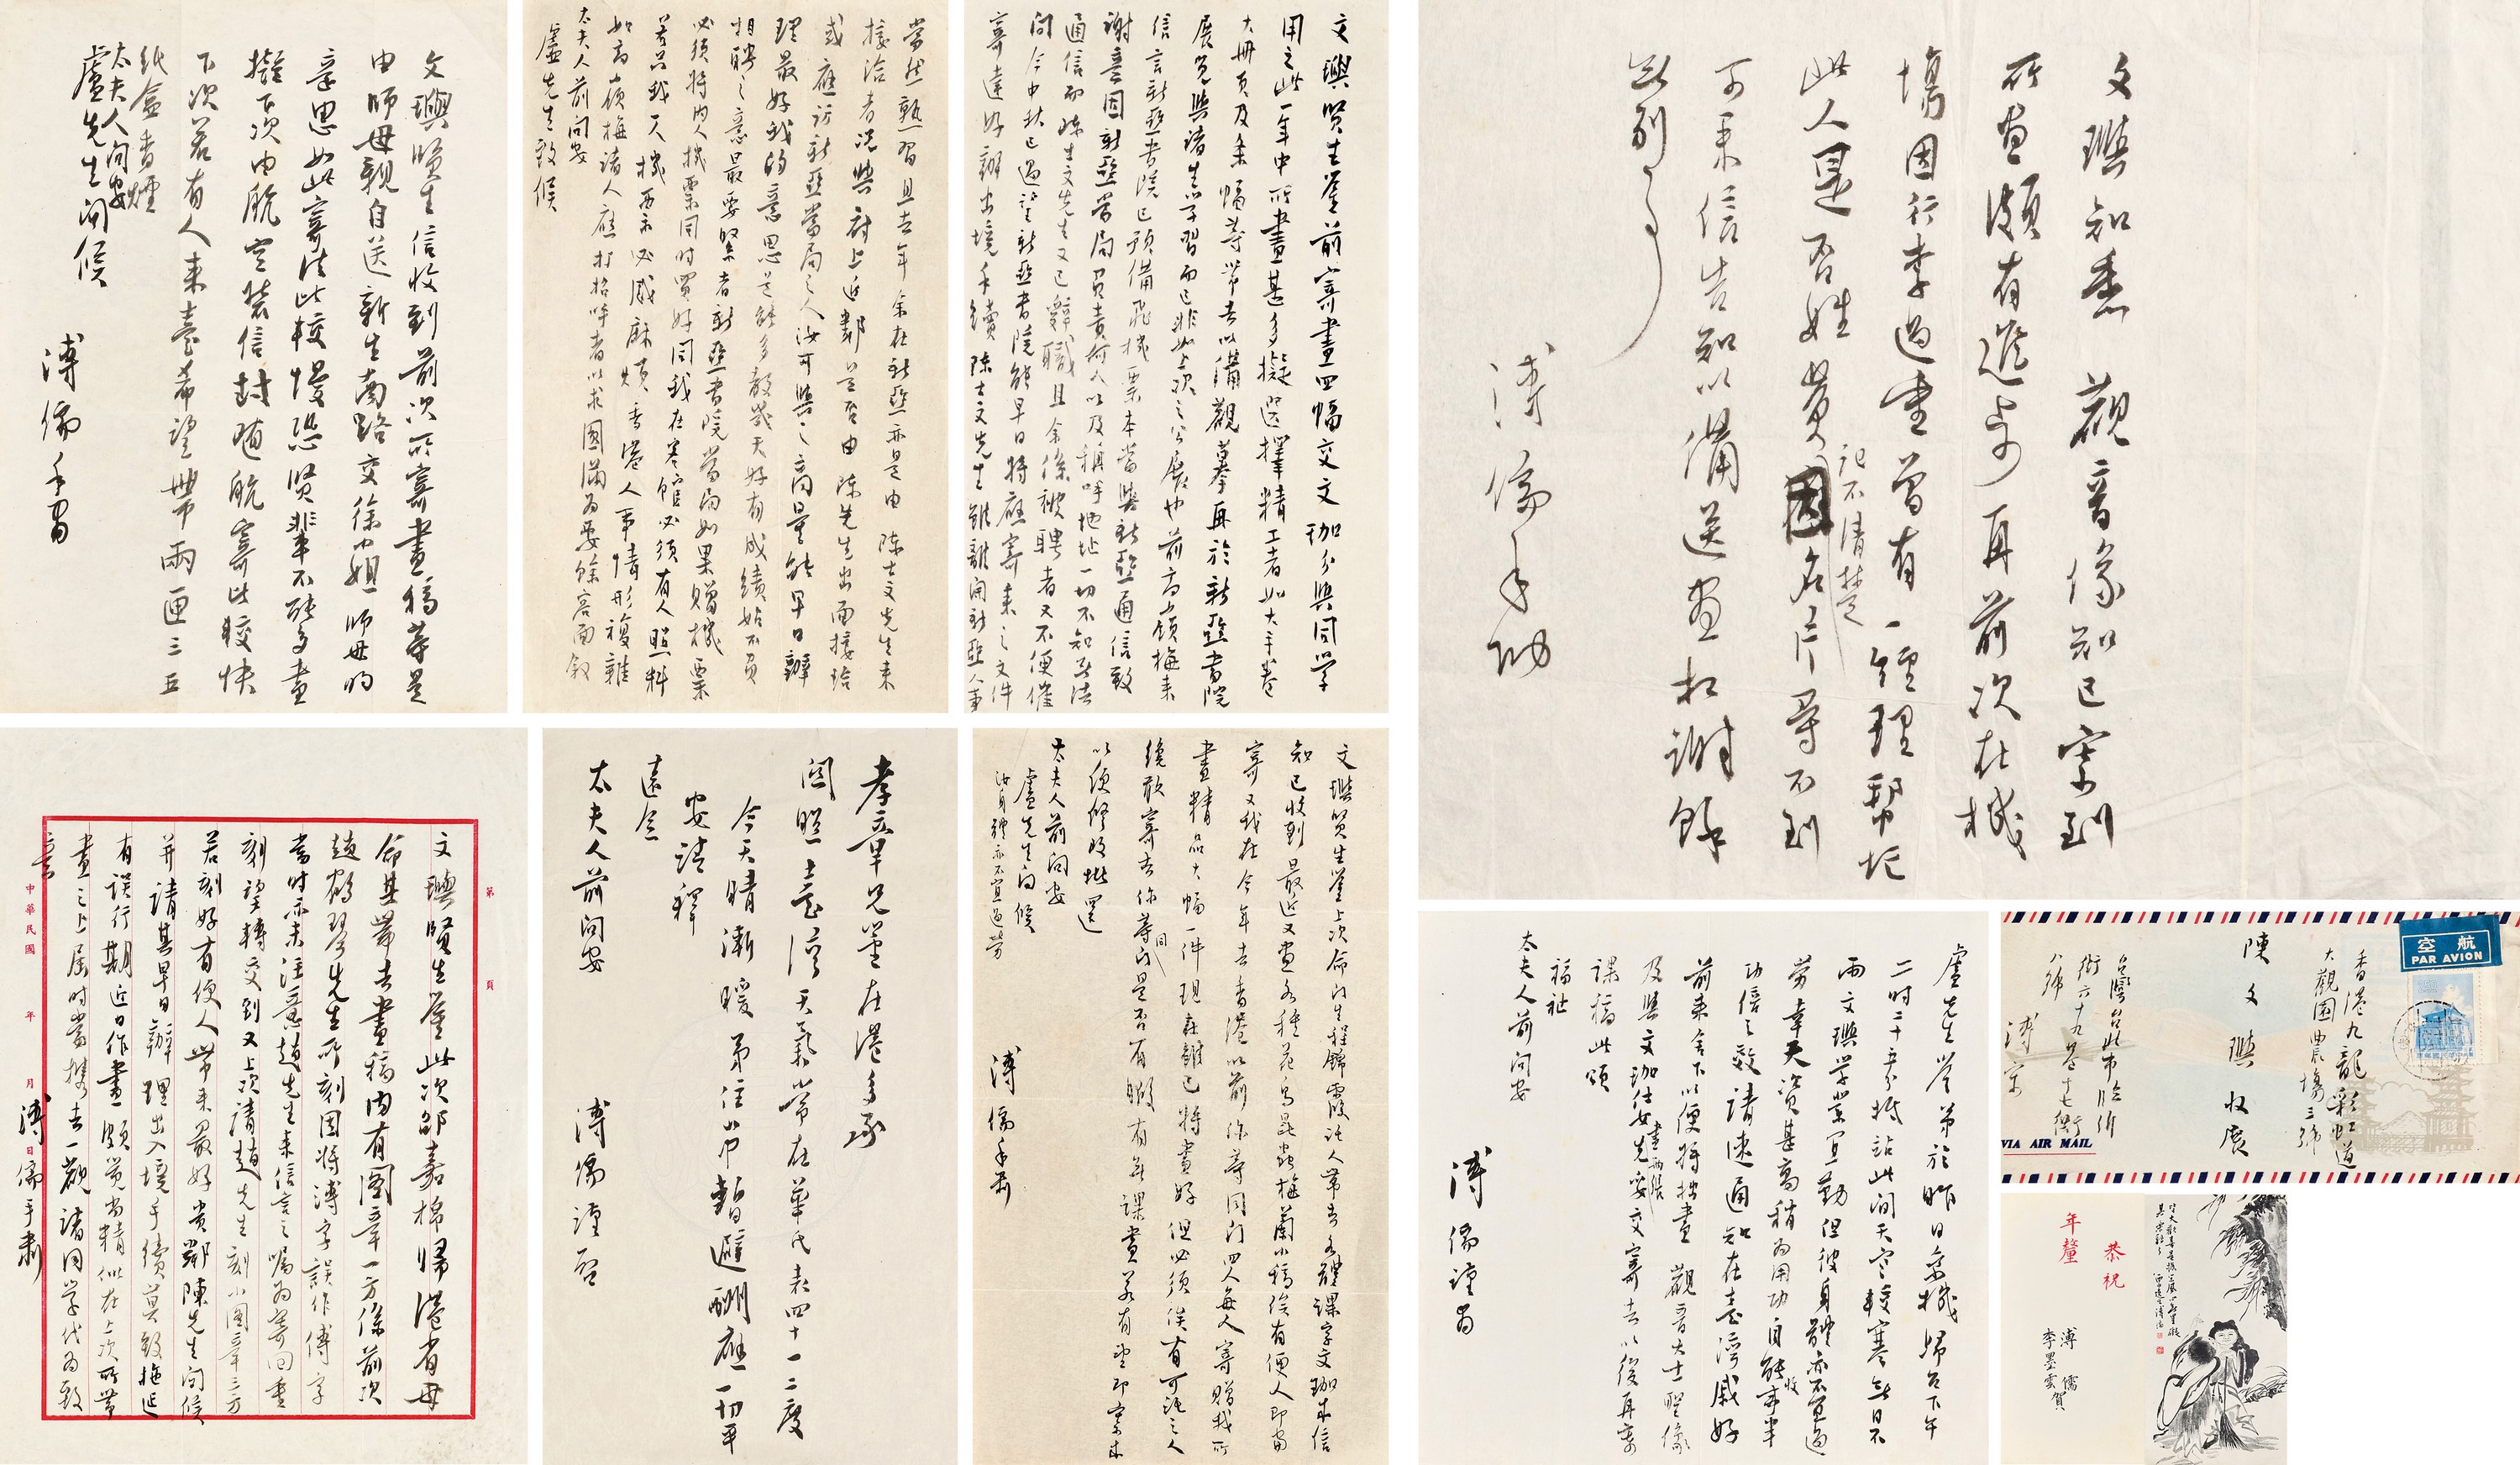 文璵賢生信收到前次所寄畫稿等是
由師母親自送新生南路交徐小姐師母的
意思如此寄法比較慢恐賢輩不能多畫
擬下次由航空裝信封随航寄比較快
下次若有人来臺希望帶兩匣三五
紙盒香煙
太夫人問安
盧先生問候
溥儒手啚
文璵賢生鑒前寄畫四幅交文珈分與同學
用之此一年中所畫甚多擬選擇精工者如大手卷
大冊頁及条幅等帶去以備觀摹再於新亞書院
展覽與諸生学習而已非如上次之公展也前高嶺梅来
信言新亞書院已預備飛機票本當與新亞通信致
謝意因新亞當局負責何人以及稱呼地址一切不知無法
通信而陳士文先生又已辭職且余係被聘者又不便催
問今中秋已過望新亞書院能早日將應寄来之文件
寄達好辦出境手續陳士文先生雖離開新亞人事
當然熟習且去年余在新亞亦是由陳士文先生来
接洽者況與府上近鄰是否由陳先生出面接洽
或應訪新亞當局之人汝可與之商量能早日辦
理最好我的意思是能多教幾天好有成績始不負
相聘之意最要緊者新亞書院當局如果贈機票
必須將内人機票同時買好同我在寒舘必須有人照料
若只我一人機票亦必感麻煩香港人事情形複雜
如高嶺梅諸人應打招呼者以求圆滿為要餘容面叙
太夫人前問安
盧先生致候
文璵知悉觀音像知已寄到
所畫頗有進步再前次在機
場因行李過重曾有一經理幫忙
此人是否姓黄名片尋不到
記不清楚
可来信告知以備送畫相謝餘
無別事
溥儒手啚
文璵賢生鑒此次邵嘉棉歸港省母
命其帶去畫稿内有圖章一方係前次
趙鶴琴先生所刻因將溥字誤作傅字
當時亦未注意趙先生来信言之囑為寄回重
刻望轉交到又上次請趙先生刻小圖章三方
若刻好有便人帶来最好貴鄰陳先生問候
并請其早日辦理出入境手續莫致拖延
有誤行期近日作畫頗覺尚精似在上次所帶
畫之上届时當攜去一觀諸同学代為致
意
溥儒手肅
第 頁
中華民國 年 月 日
孝章兄鑒在港多承
関照臺灣天氣常在華氏表四十一二度
今天晴漸暖弟住山中暫避酬應一切平
安請釋
遠念
太夫人前問安
溥儒謹啓
文璵賢生鑒上次命门生程錦霞託人帶去各體課字文珈来信
知已收到最近又畫各種花鳥昆虫梅蘭小稿俟有便人即當
寄又我在今年去香港以前你等同门四人每人寄贈我所
畫精品大幅一件現在雖已將畫好但必須俟有可託之人
纔敢寄去你等同门是否有暇有無課畫若有望即寄来
以便修改批還
太夫人前問安
盧先生问候
汝身體亦不宜過勞
溥儒手肅
盧先生鑒弟於昨日乘機歸台下午
二时二十五分抵站此间天空較寒無日不
雨文璵学業宜勤但彼身體亦不宜過
劳幸天資甚高稍為用功自能收事半
功倍之效請速通知在臺灣戚好
前来舍下以便將拙畫觀音大士聖像
及與文珈仕女畫兩張先妥交寄去以後再寄
課稿此頌
福祉
太夫人前问安
溥儒謹啚
航空
PAR AVION
香港九龍彩虹道
大觀園農塲三號
陳文璵收展
台灣台北市臨沂
街六十九巷十七衖
八號
溥寄
VIA AIR MAIL
恭祝
年釐
溥儒
李墨雲賀